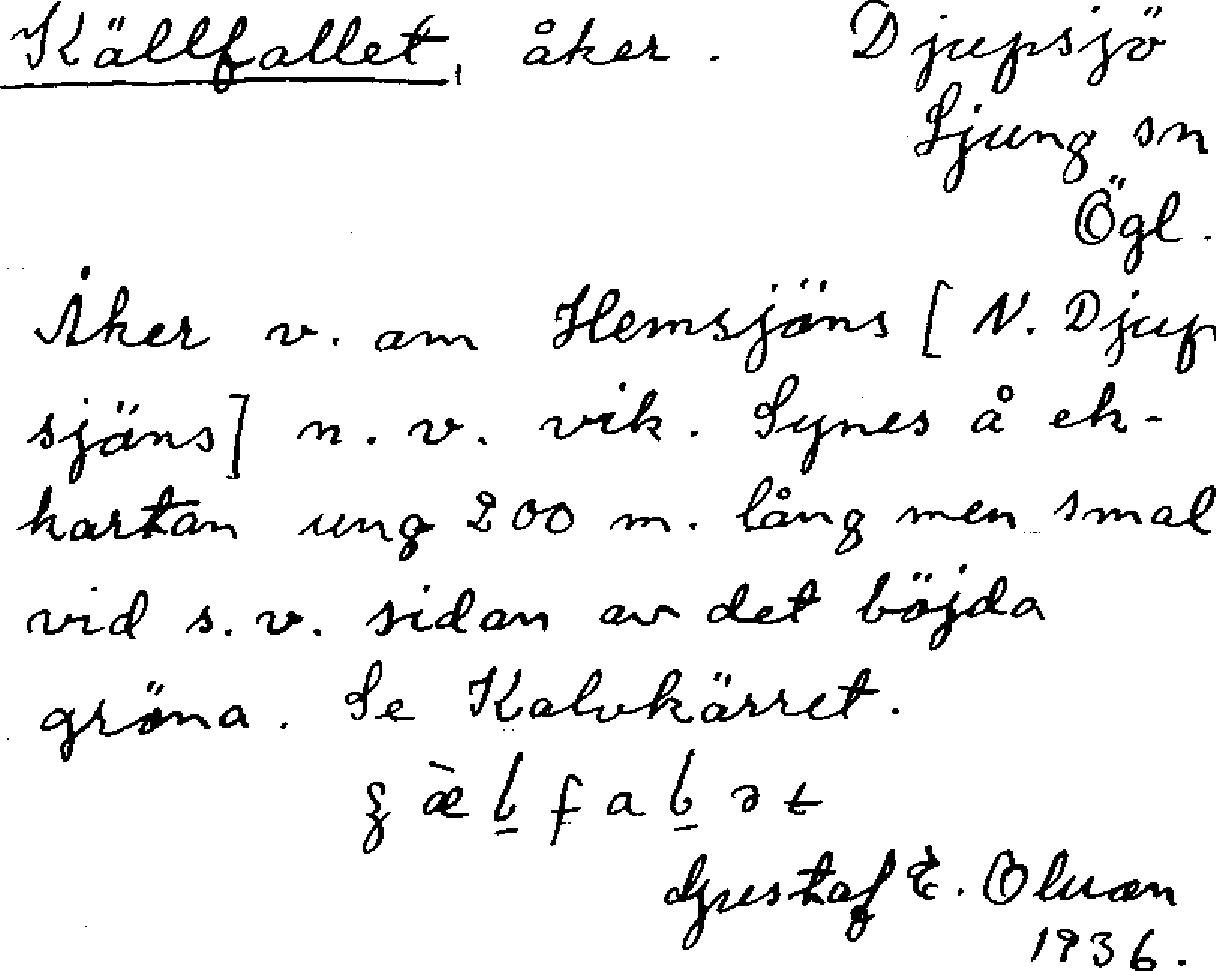 Källfallet, åker. Djupsjö
Ljung sn
Ögl.
Åker v. om Hemsjöns [N. Djup
sjöns] n.v. vik. Synes å ek-
kartan ung 200 m. lång men smal
vid s.v. sidan av det böjda
gröna. Se Kalvkärret.
Gustaf E. Olson
1936.